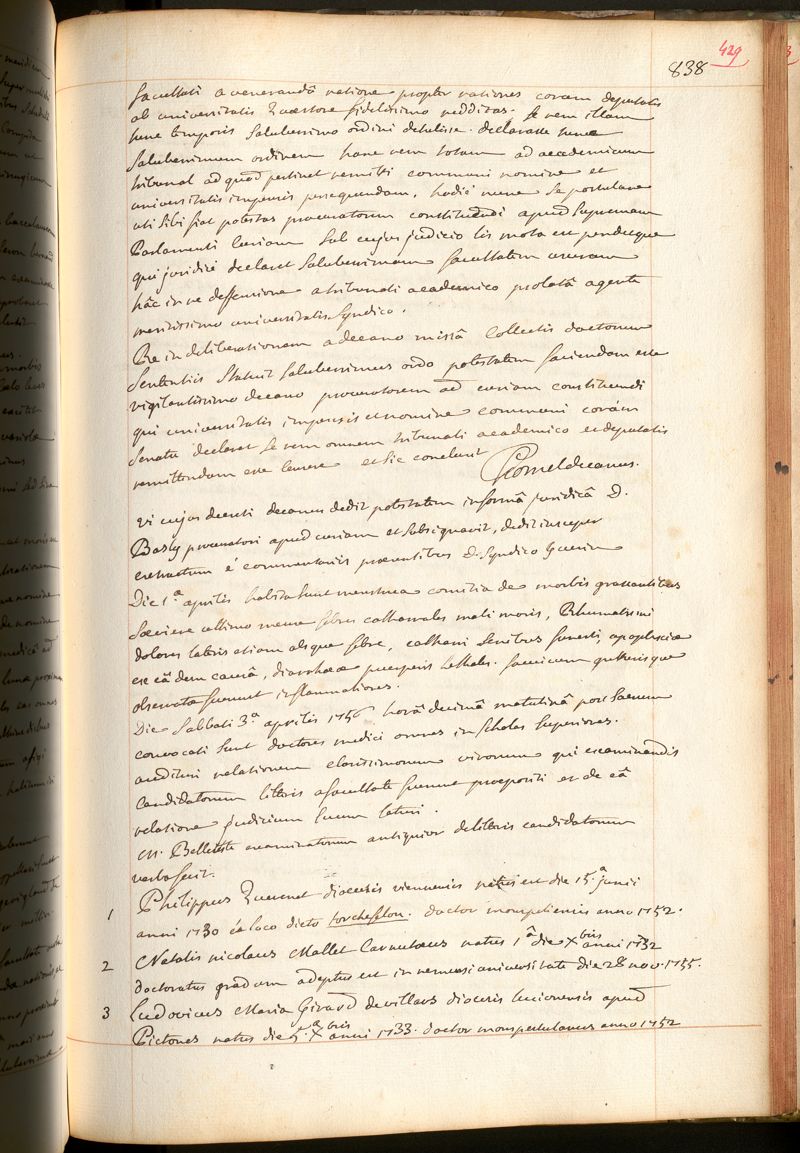 429
838
facultati a venerandâ natione propter rationes coram deputatis
ab universitatis Quæstore fidelissimo redditas. Se rem illam
nunc temporis Saluberrimo ordini detulisse. declarasse nunc
Saluberrimum ordinem hanc rem totam ad academicum
tribunal ad quod pertinet remitti communi nomine et
universitatis impensis persequendam, hodie nunc Se postulare
uti sibi fiat potestas procuratorem constituendi apud Supremam
Parlamenti Curiam Sub cujus judicio lis mota est penditque
qui juridicè declaret Saluberrimam facultatem
hâc in re deffensione a tribunali academico prolatâ agente
meritissimo universitatis Syndico.
Re in deliberationem a decano missâ Collectis doctorum
Sententiis Statuit Saluberrimus ordo potestatem faciendam esse
vigilantissimo decano procuratorem ad curiam constituendi
qui universitatis impensis et nomine communi coràm
Senatu declaret se rem omnem tribunali academico et deputatis
remittendam esse censere et sic conclusit
Chomel decanus.
Vi cujus decreti decanus dedit potestatem in formâ juridicâ D.
Basly procuratori apud curiam et subsignavit, dedit insuper
extractum è commentariis præeuntibus D. Syndico Guerin
Die 1.ª aprilis habita sunt menstrua comitia de morbis grassantibus
Sæviere ultimo mense febres catharrales mali moris, Rhumatismi
dolores lateris etiam absque febre, catharri Senibus funesti, apoplexiæ
ex eâdem causâ, diarrhææ puerperis lethales. faucium gutturisque
observatæ fuerunt inflammationes.
Die Sabbati 3.ª aprilis 1756 horâ decimâ matutinâ post Sacrum
convocati sunt doctores medici omnes in Scholas Superiores.
audituri relationem clarissimorum virorum qui examinandis
Candidatorum litteris a facultate fuerunt præpositi et de eâ
relatione judicium suum laturi.
M. Belleteste examinatorum antiquior de litteris candidatorum
verba fecit.
1 Philippus Quenet diocesis viennensis natus est die 15.ª junii
anni 1730 è loco dicto torcheffelon. doctor monspeliensis anno 1752.
2 Natalis nicolaus Mallet Carnutæus natus 1.ª die Xbris anni 1732
doctoratus gradum adeptus est in remensi universitate die 28 nov. 1755.
3 Ludovicus Maria Girard de villars diocesis lucionensis apud
Pictones natus die 5.ª Xbris anni 1733. doctor monspessulanus anno 1752